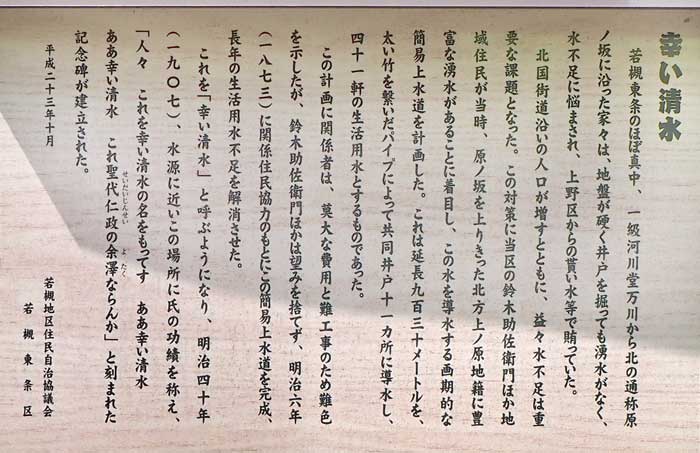 幸い清水
若槻東条のほぼ真中、一級河川堂万川から北の通称原
ノ坂に沿った家々は、地盤が硬く井戸を掘っても湧水がなく、
水不足に悩まされ、上野区からの貰い水等で賄っていた。
北国街道沿いの人口が増すとともに、益々水不足は重
要な課題となった。この対策に当区の鈴木助佐衛門ほか地
域住民が当時、原ノ坂を上りきった北方上ノ原地籍に豊
富な湧水があることに着目し、この水を導水する画期的な
簡易上水道を計画した。これは延長九百三十メートルを、
太い竹を繋いだパイプによって共同井戸十一カ所に導水し、
四十一軒の生活用水とするものであった。
この計画に関係者は、莫大な費用と難工事のため難色
を示したが、鈴木助佐衛門ほかは望みを捨てず、明治六年
(一八七三)に関係住民協力のもとにこの簡易上水道を完成、
長年の生活用水不足を解消させた。
これを「幸い清水」と呼ぶようになり、明治四十年
(一九〇七)、水源に近いこの場所に氏の功績を称え、
「人々 これを幸い清水の名をもってす ああ幸い清水
ああ幸い清水 これ聖代仁政の余澤ならんか」と刻まれた
せいだいじんせい よたく
記念碑が建立された。
平成二十三年十月
若槻地区住民自治協議会
若槻東条区